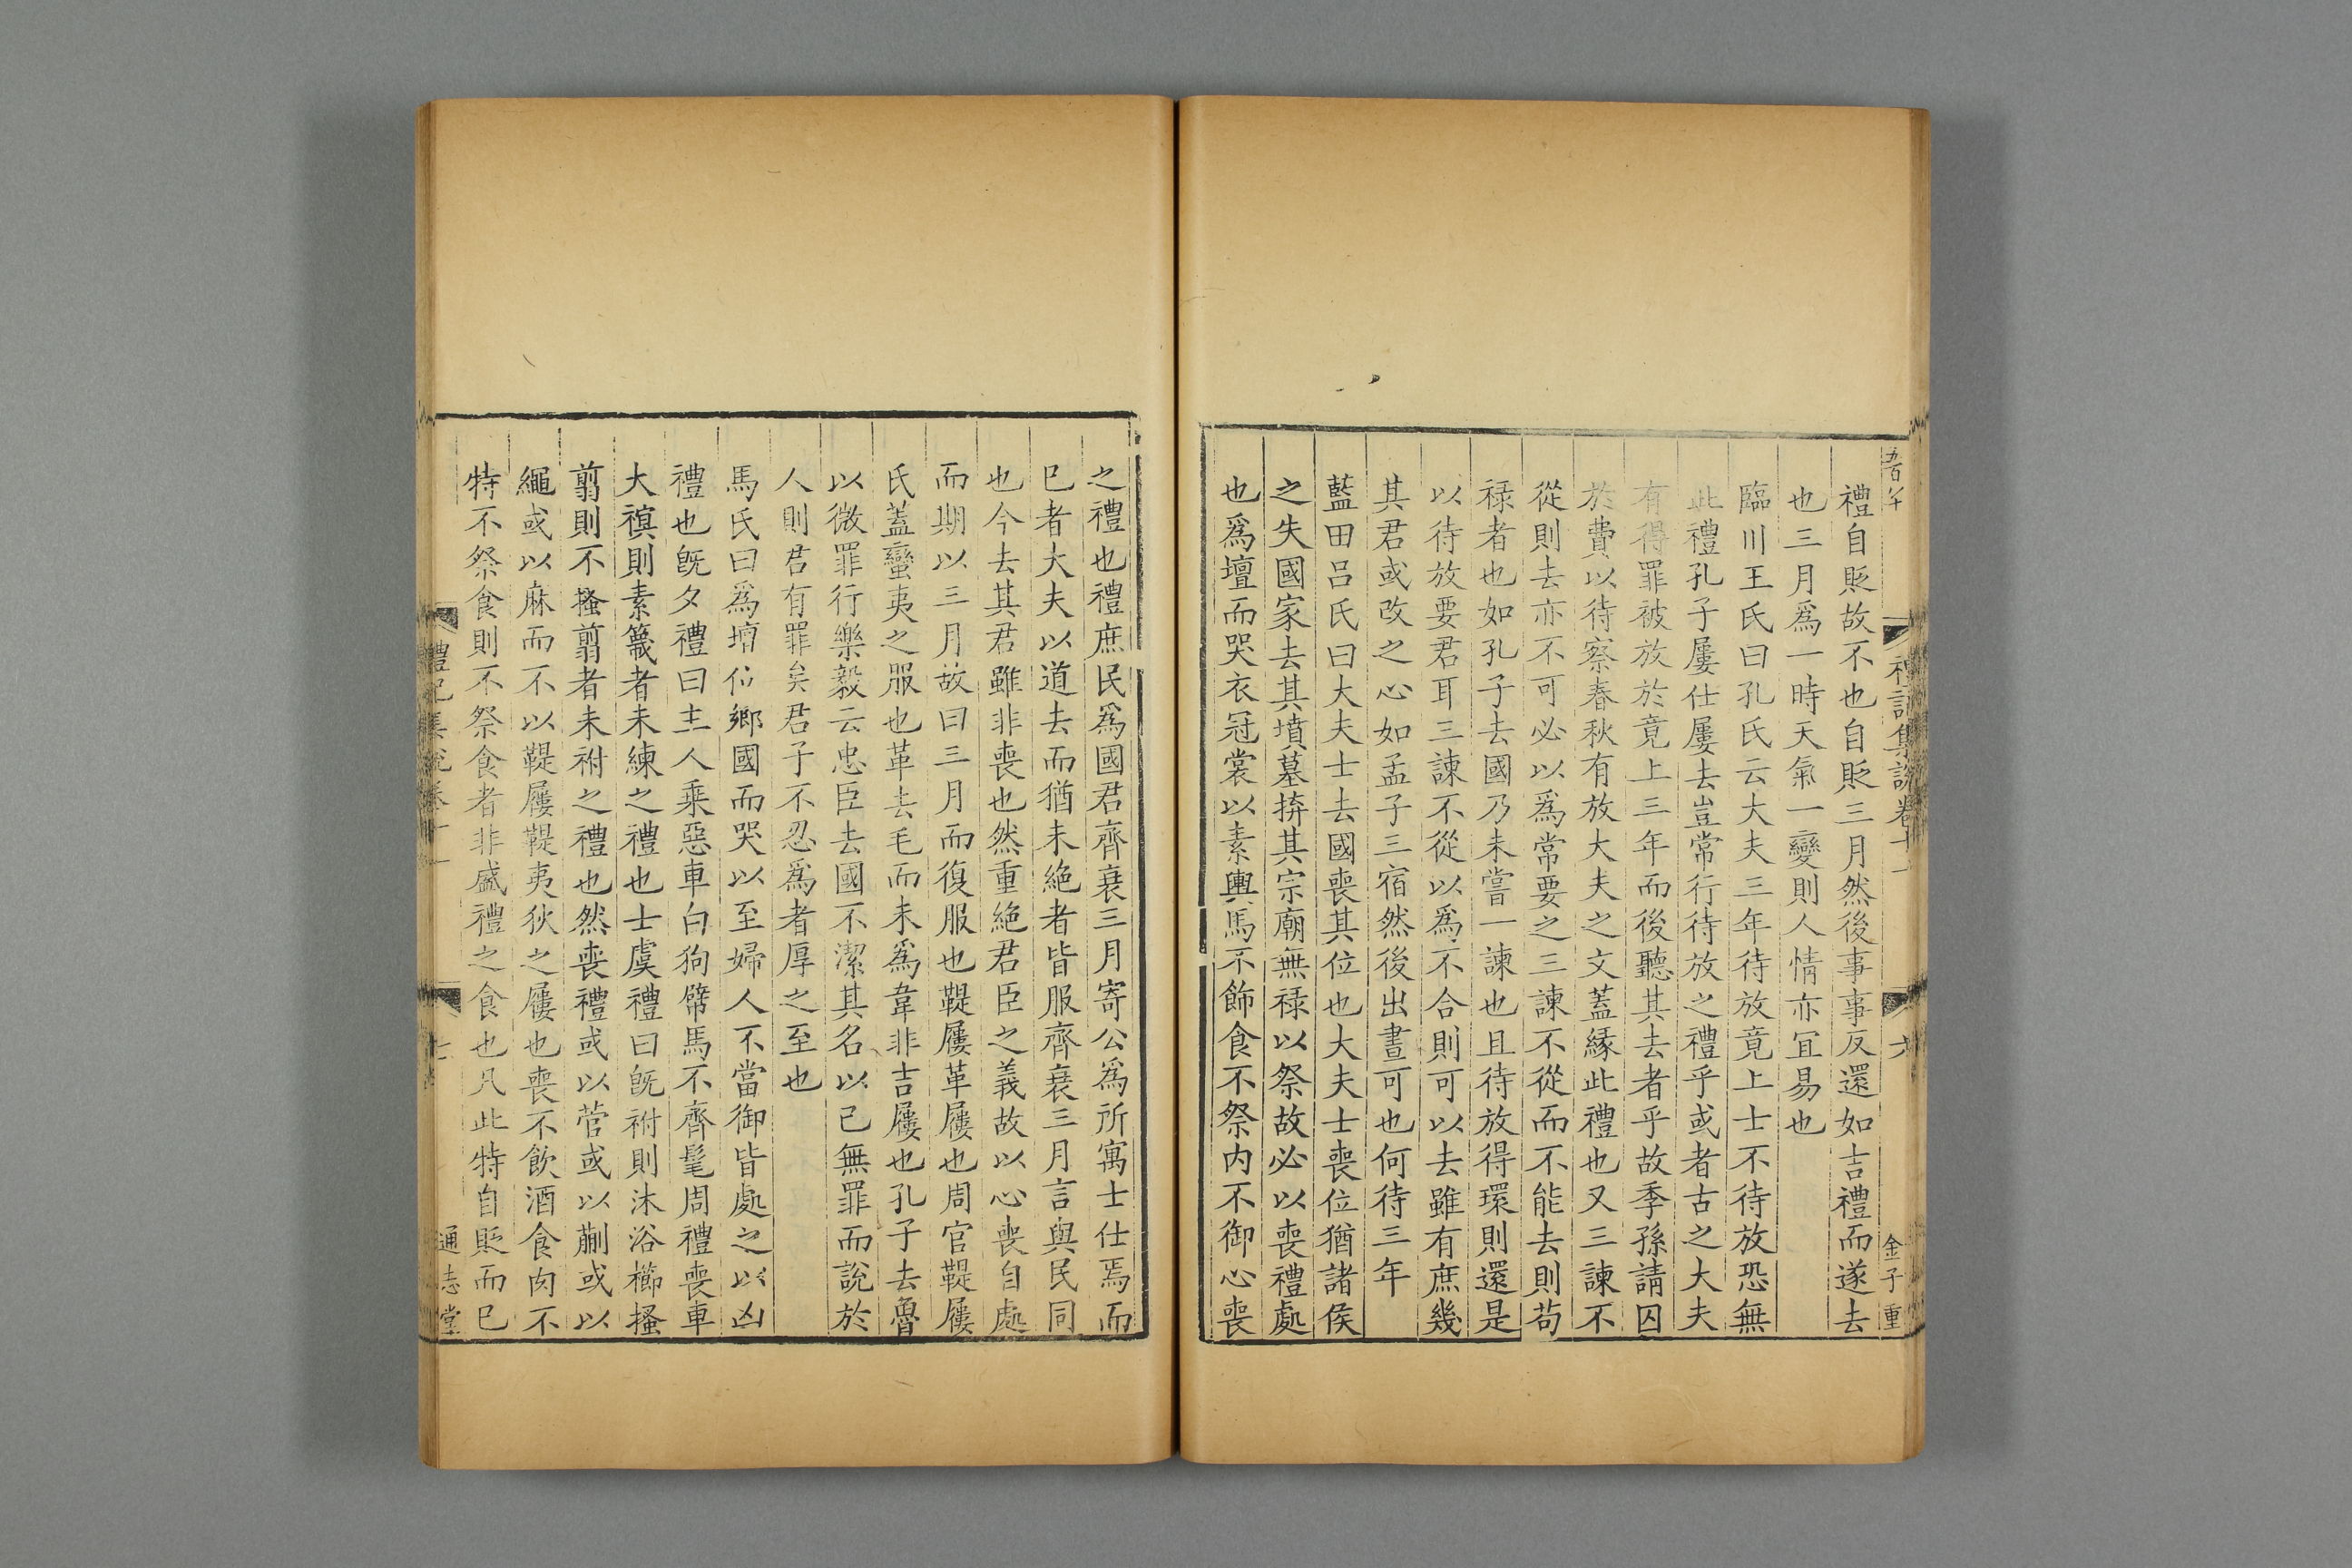 禮自貶故不也自貶三月然後事事反還如吉禮而遂去
也三月爲一時天氣一變則人情亦宜易也
臨川王氏曰孔氏云大夫三年待放竟上士不待放恐無
此禮孔子屢仕屢去豈常行待放之禮乎或者古之大夫
有得罪被放於竟上三年而後聽其去者乎故季孫請囚
於費以待察春秋有放大夫之文蓋緣此禮也又三諫不
從則去亦不可必以爲常要之三諫不從而不能去則苟
祿者也如孔子去國乃未嘗一諫也且待放得環則還是
以待放要君耳三諫不從以爲不合則可以去雖有庶幾
其君或改之心如孟子三宿然後出晝可也何待三年
藍田呂氏曰大夫士去國喪其位也大夫士喪位猶諸侯
之失國家去其墳墓捹其宗廟無祿以祭故必以喪禮處
也爲壇而哭衣冠裳以素輿馬不飾食不祭内不御心喪
禮記集說卷十一
六
金子重
之禮也禮庶民爲國君齊衰三月寄公爲所寓士仕焉而
已者大夫以道去而猶未絶者皆服齊衰三月言與民同
也今去其君雖非喪也然重絶君臣之義故以心喪自處
而期以三月故曰三月而復服也鞮屨革屨也周官鞮屨
氏蓋蠻夷之服也革去毛而未爲韋非吉屨也孔子去魯
以微罪行樂毅云忠臣去國不潔其名以已無罪而說於
人則君有罪矣君子不忍爲者厚之至也
馬氏曰爲壇位鄉國而哭以至婦人不當御皆處之以凶
禮也旣夕禮曰主人乘惡車白狗幦馬不齊髦周禮喪車
大𧜀則素簚者未練之禮也士虞禮曰旣祔則沐浴櫛搔
翦則不搔翦者未祔之禮也然喪禮或以菅或以蒯或以
繩或以麻而不以鞮屨鞮夷狄之屨也喪不飲酒食肉不
特不祭食則不祭食者非盛禮之食也凡此特自貶而已
禮記集說卷十一
七
通志堂